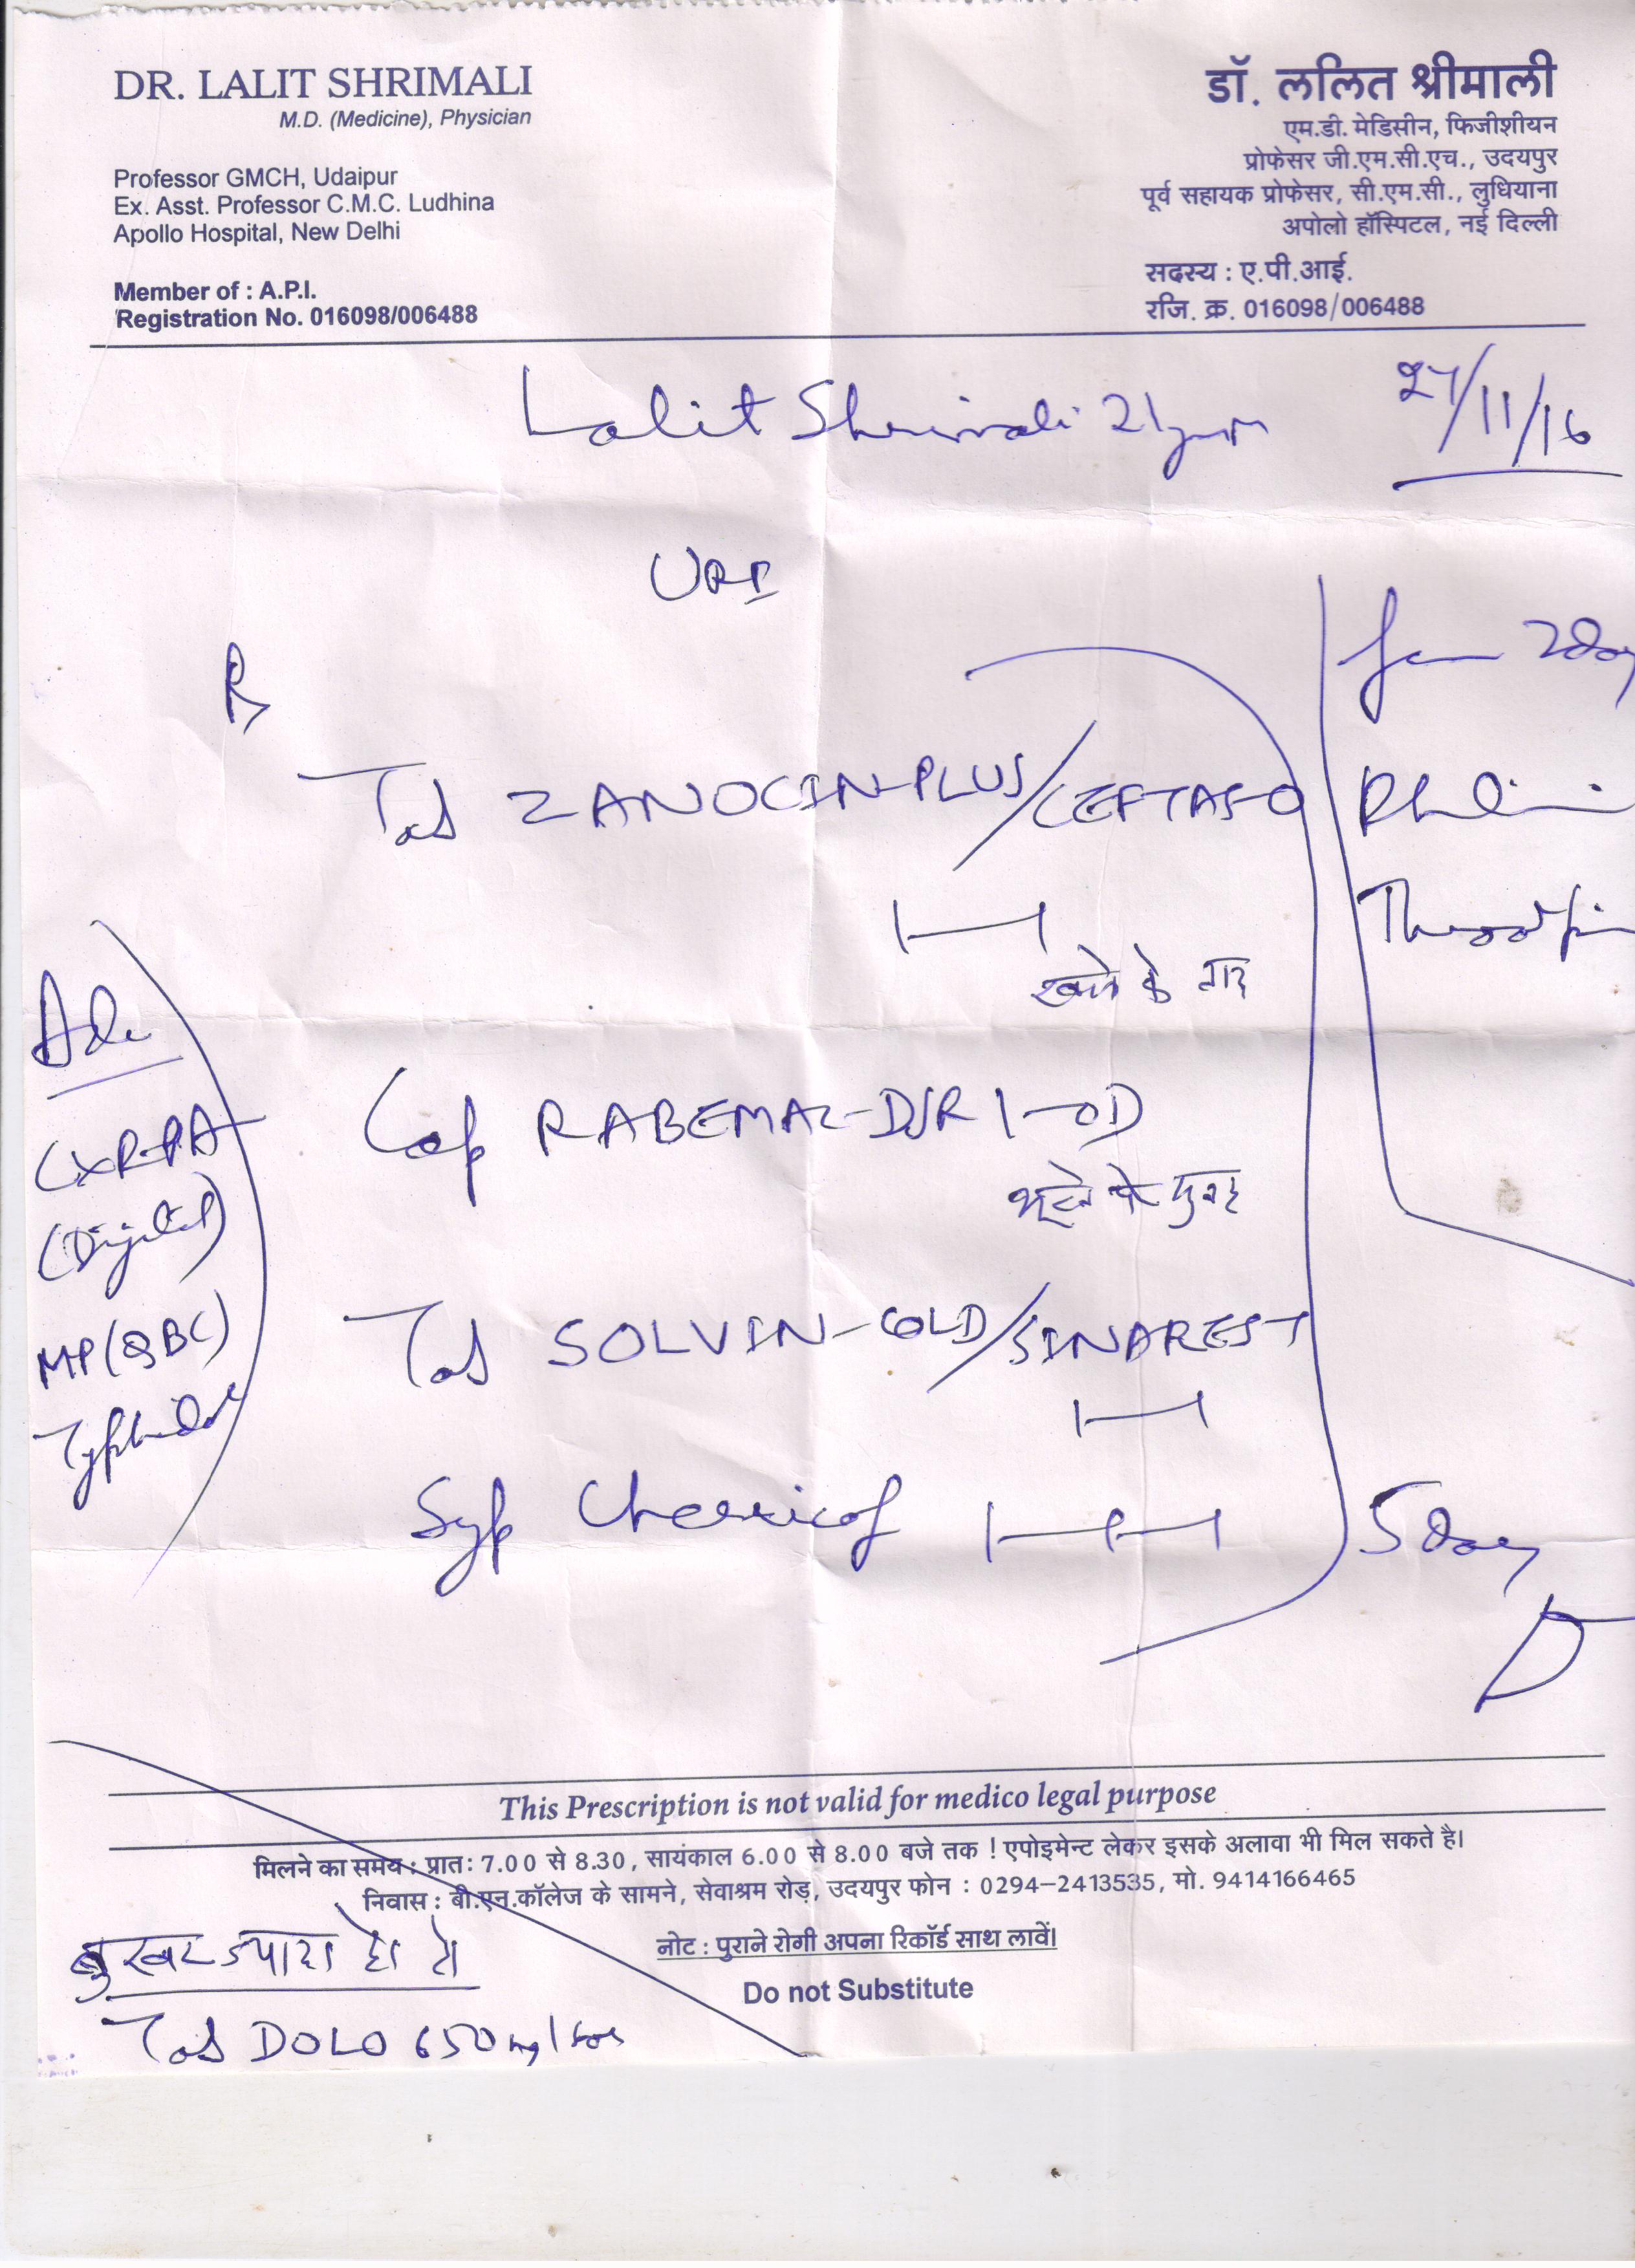 DR. LALIT SHRIMALI
M.D. (Medicine), Physician
Professor GMCH, Udaipur
Ex. Asst. Professor C.M.C. Ludhina
Apollo Hospital, New Delhi
Member of : A.P.I.
Registration No. 016098/006488
डॉ. ललित श्रीमाली
एम.डी. मेडिसीन, फिजीशीयन
प्रोफेसर जी.एम.सी.एच., उदयपुर
पूर्व सहायक प्रोफेसर, सी.एम.सी., लुधियाना
अपोलो हॉस्पिटल, नई दिल्ली
सदस्य : ए.पी.आई.
रजि. क्र. 016098/006488
Lalit Shrimali 21
27/11/16
URI
2day
Rx
Tab ZANOCIN-PLUS/CEFTAS-O
Throat
खाने के बाद
Adv
CXR-PA
(Digital)
MP(QBC)
Typhidot
Cap RABEMAC-DSR 1-OD
Tab SOLVIN-COLD/SINAREST
Syp Chericof
5 day
This Prescription is not valid for medico legal purpose
मिलने का समय : प्रातः 7.00 से 8.30, सायंकाल 6.00 से 8.00 बजे तक ! एपोइमेन्ट लेकर इसके अलावा भी मिल सकते है।
निवास : बी.एन.कॉलेज के सामने, सेवाश्रम रोड़, उदयपुर फोन : 0294–2413535, मो. 9414166465
नोट : पुराने रोगी अपना रिकॉर्ड साथ लावें।
Do not Substitute
बुखार ज्यादा हो तो
Tab DOLO 650mg